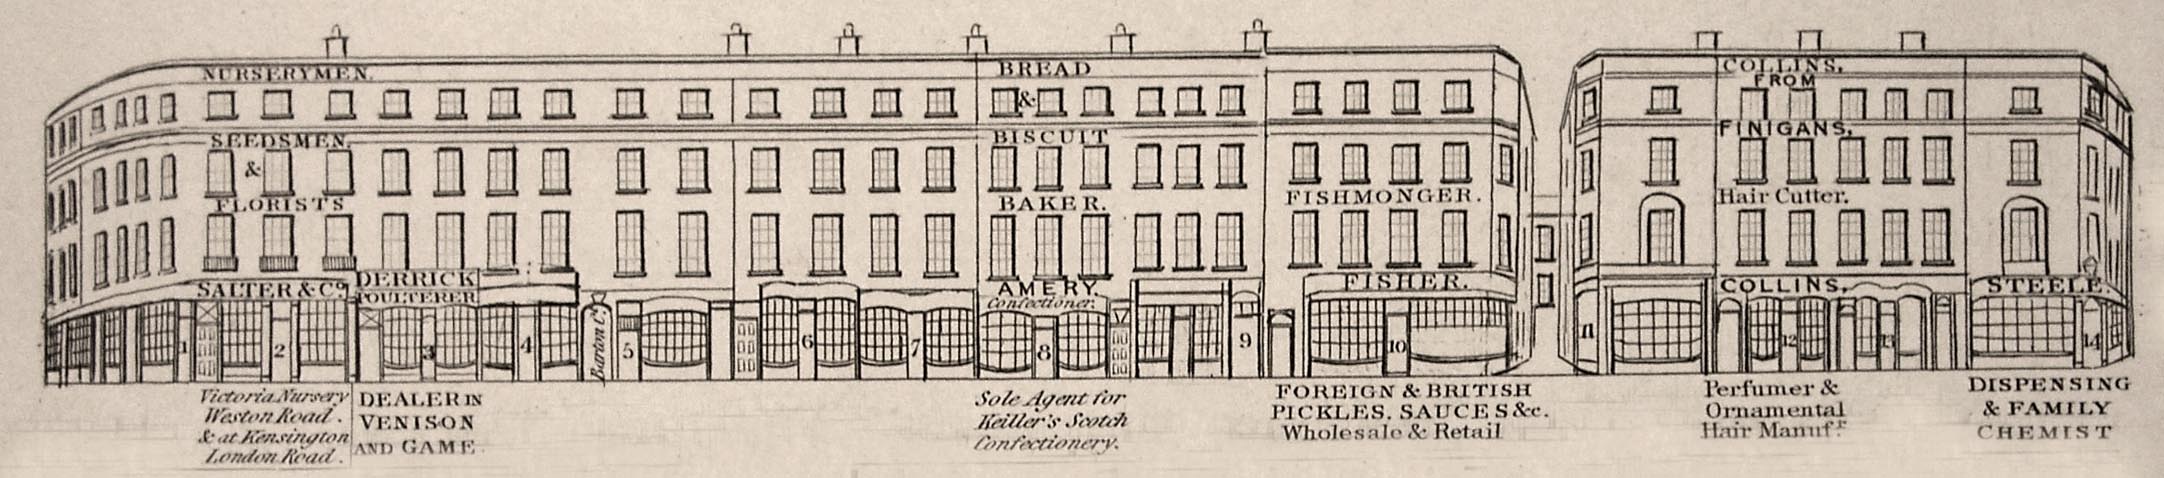 NURSERYMEN.
SEEDSMEN.
&
FLORISTS
SALTER & Co.
1
2
Victoria Nursery
Weston Road.
& at Kensington
London Road.
DERRICK
POULTERER
3
DEALER IN
VENISON
AND GAME
4
Barton Ct.
5
6
7
BREAD
&
BISCUIT
BAKER.
AMERY.
Confectioner.
8
Sole Agent for
Keiller's Scotch
Confectionery.
9
FISHMONGER.
FISHER.
10
FOREIGN & BRITISH
PICKLES. SAUCES &c.
Wholesale & Retail
11
COLLINS,
FROM
FINIGANS,
Hair Cutter.
COLLINS,
12
13
Perfumer &
Ornamental
Hair Manufr.
STEELE.
14
DISPENSING
& FAMILY
CHEMIST